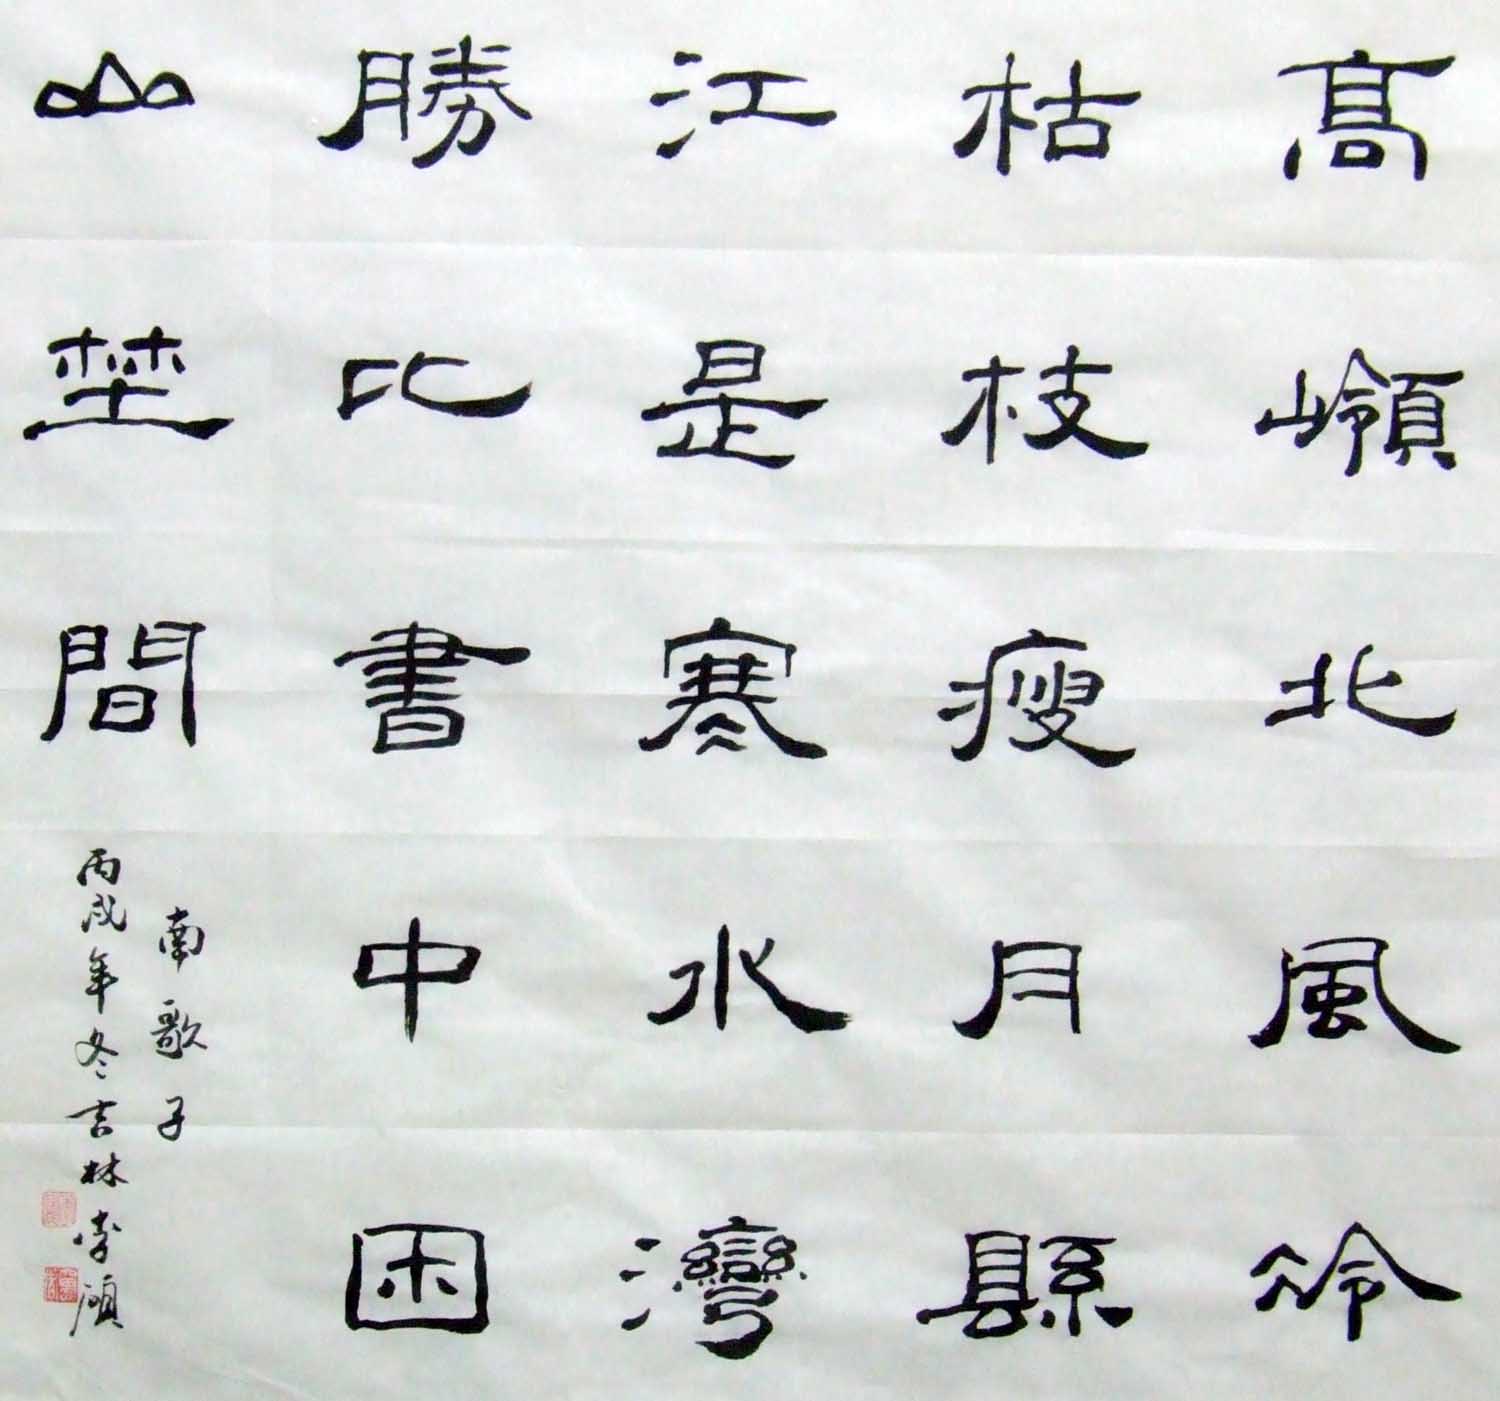 高嶺北風冷
枯枝瘦月縣
江是寒水灣
勝比書中困
山埜間
南歌子
丙戌年冬吉林李碩